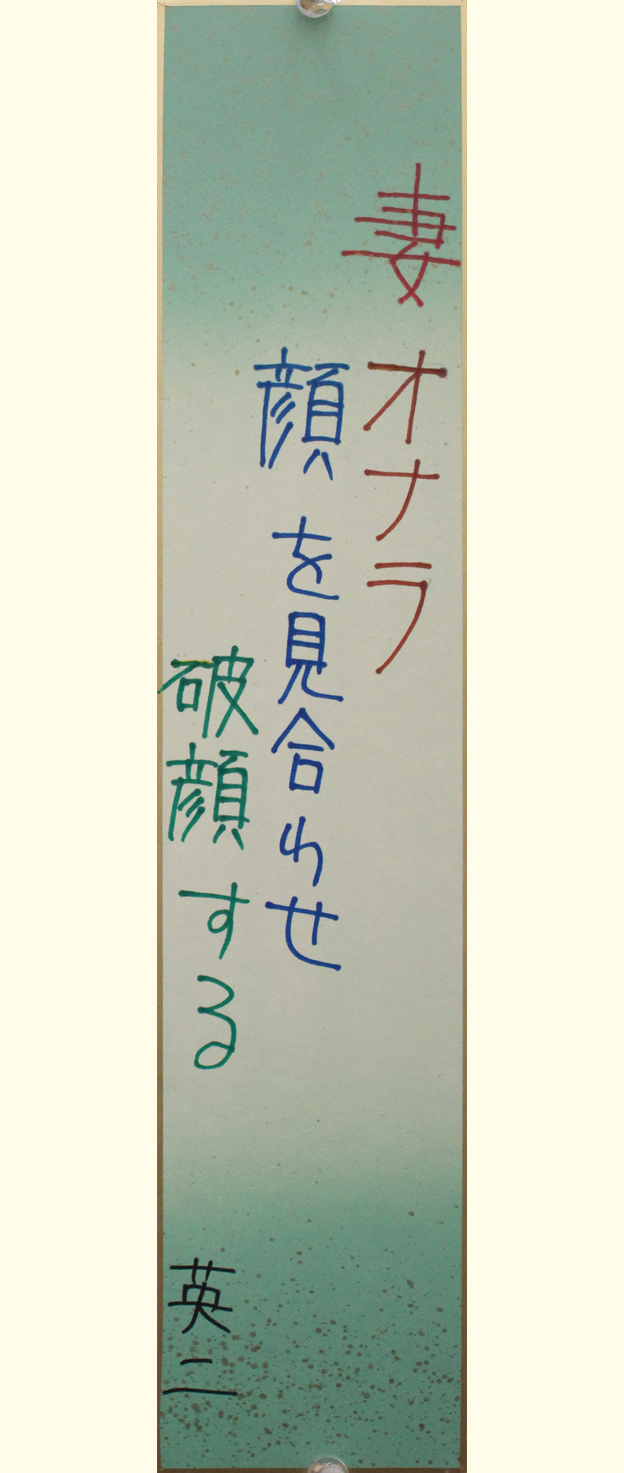 妻オナラ
顔を見合わせ
破顔する
英二